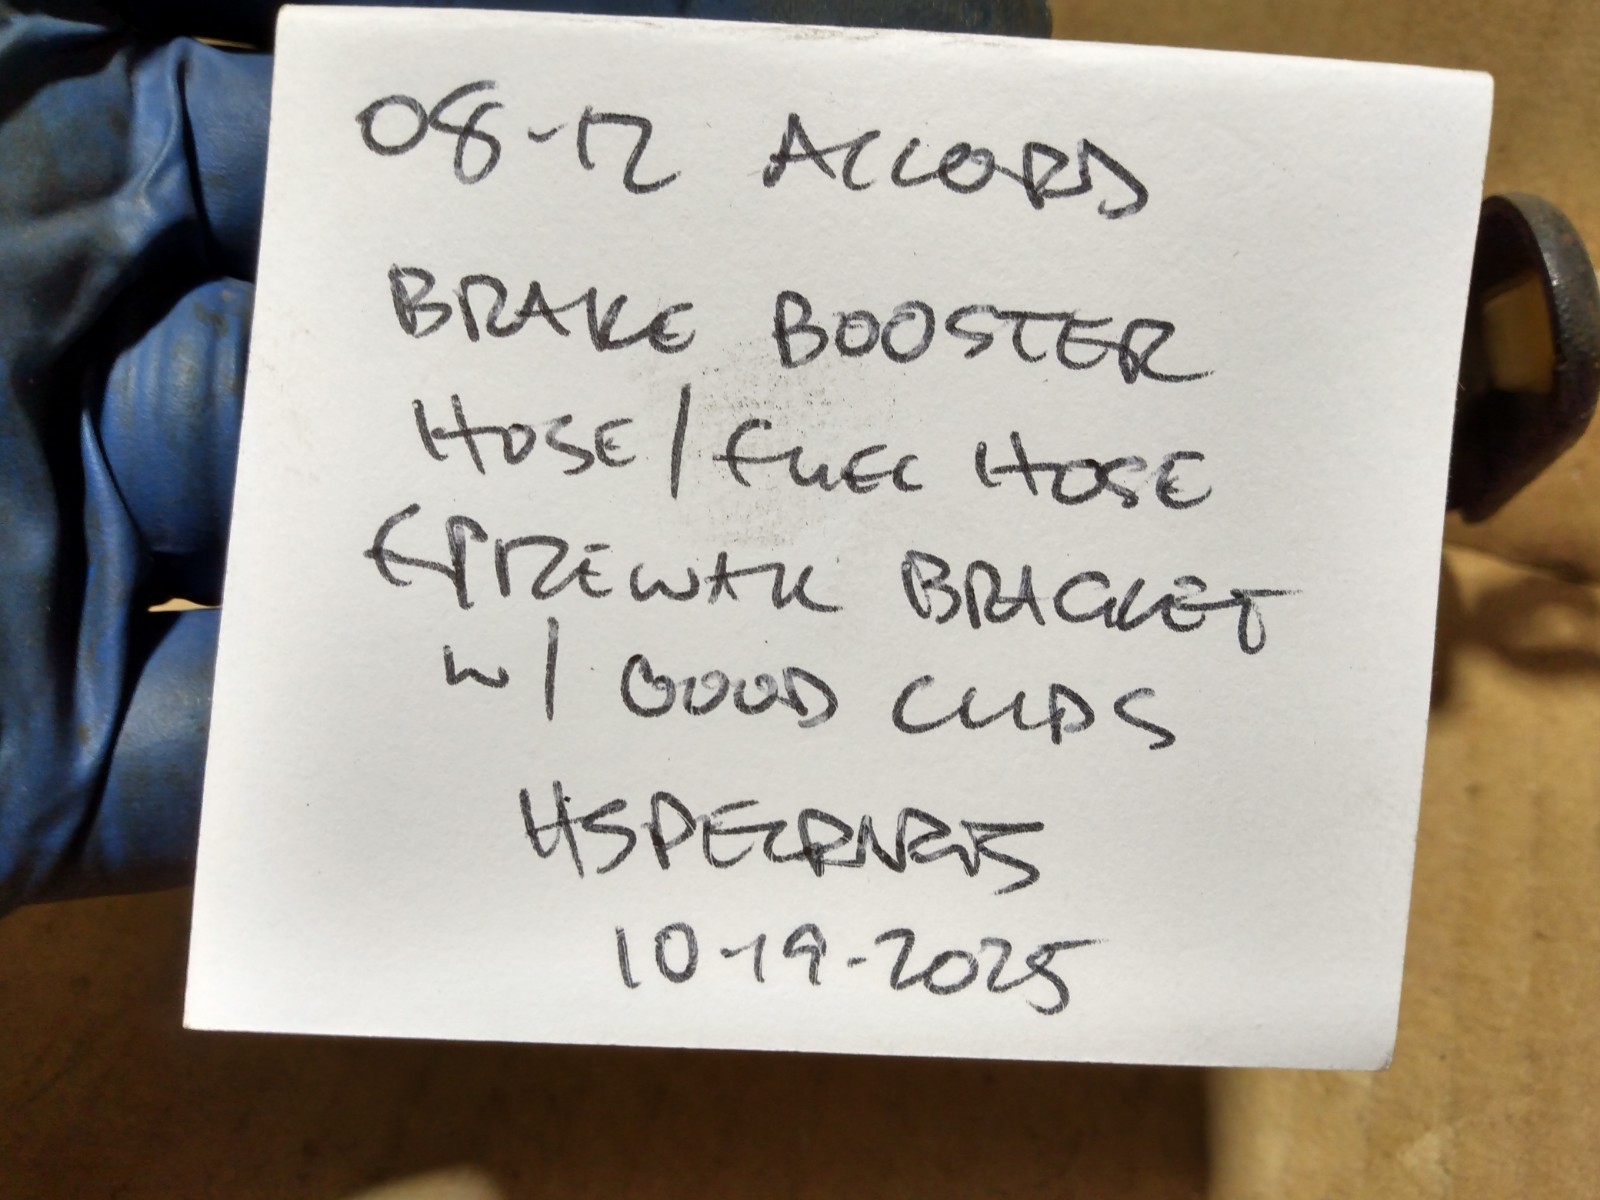 08-12 ACCORD
BRAKE BOOSTER
HOSE/FUEL HOSE
FIREWALL BRACKET
W/ GOOD CLIPS
10-19-2025